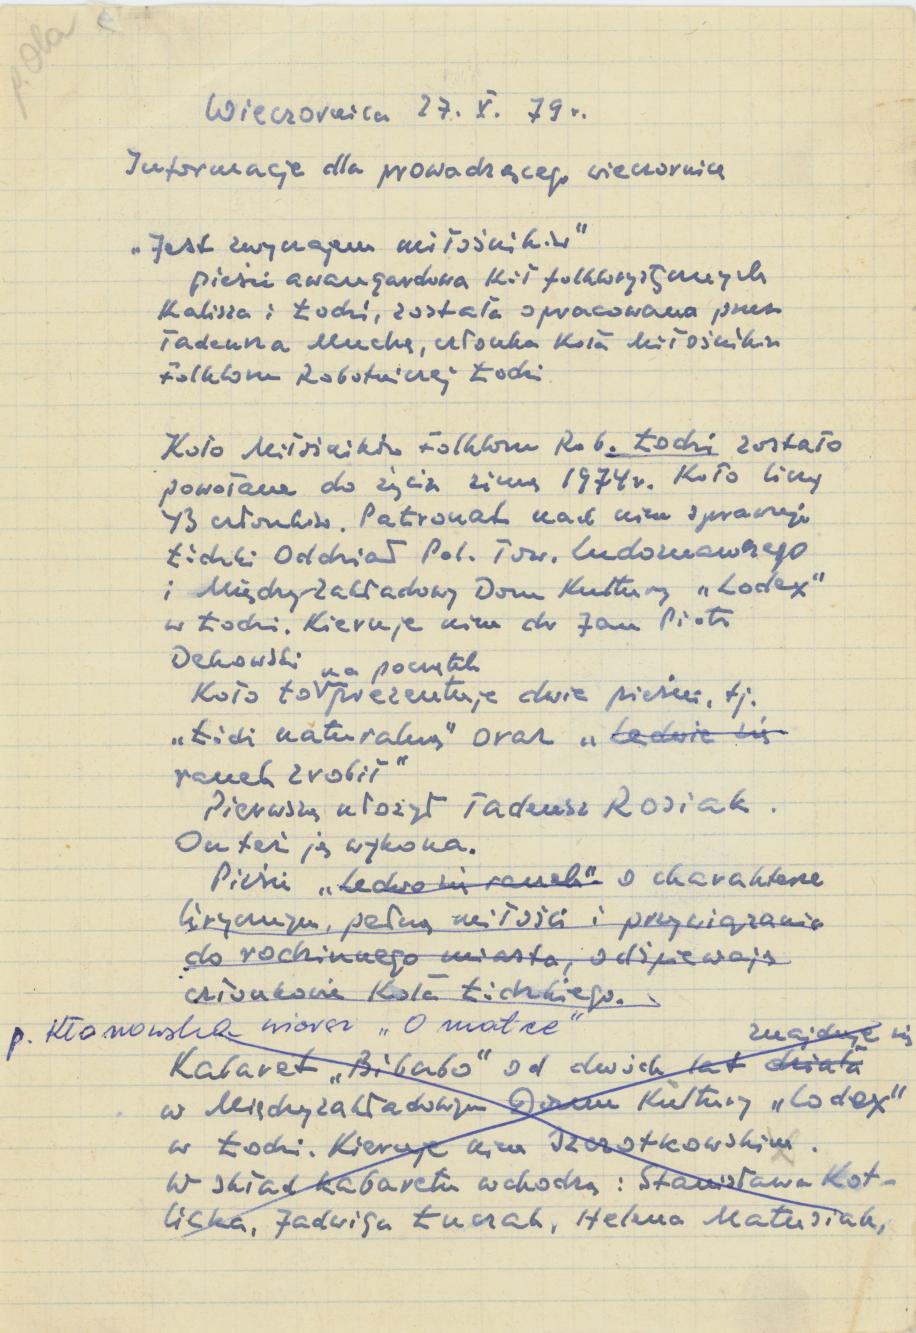 p. Ola
Wieczornica 27. X. 79 r.
Informacje dla prowadzącego wieczornicę
„Jest zwyczajem miłośników"
pieśń awangardowa Kół folklorystycznych
Kalisza i Łodzi, została opracowana przez
Tadeusza Muchę, członka Koła Miłośników
Folkloru Robotniczej Łodzi
Koło Miłośników Folkloru Rob. Łodzi zostało
powołane do życia zimą 1974 r. Koło liczy
43 członków. Patronat nad nim sprawuje
Łódzki Oddział Pol. Tow. Ludoznawczego
i Międzyzakładowy Dom Kultury „Lodex"
w Łodzi. Kieruje nim dr Jan Piotr
Dekowski
na początek
Koło to prezentuje dwie pieśni, tj.
„Łódź naturalną" oraz „Ledwie się
ranek zrobił"
Pierwszą ułożył Tadeusz Rosiak.
On też ją wykona.
Pieśń „Ledwo się ranek" o charakterze
lirycznym, pełną miłości i przywiązania
do rodzinnego miasta, odśpiewają
członkowie Koła Łódzkiego.
p. Kłanowska wiersz „O matce"
znajduje się
Kabaret „Bibabo" od dwóch lat działa
w Międzyzakładowym Domu Kultury „Lodex"
w Łodzi. Kieruje nim Szczotkowski.
W skład kabaretu wchodzą: Stanisława Kot-
licka, Jadwiga Łuczak, Helena Matusiak,